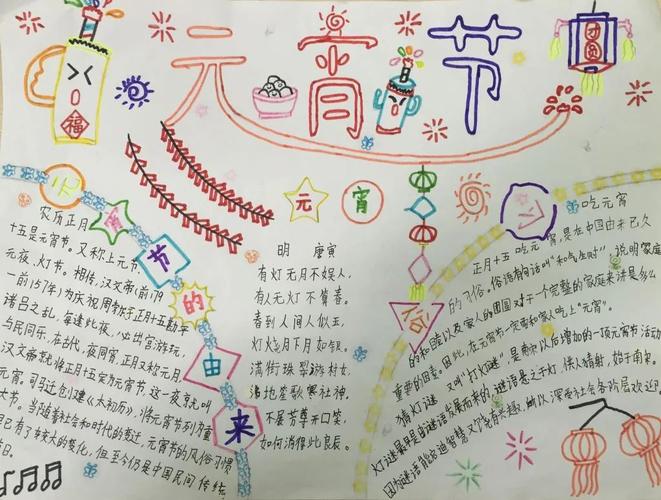 元宵节
团圆
福
元宵
元宵节的由来
农历正月
十五是元宵节。又称上元节、
元夜、灯节。相传，汉文帝（前179
一前157年）为庆祝周勃于正月十五勘平
诸吕之乱，每逢此夜，必出宫游玩，
与民同乐，在古代，夜同宵，正月又称元月，
汉文帝就将正月十五定为元宵节，这一夜就叫
元宵。司马迁创建《太初历》，将元宵节列为重
大节。当随着社会和时代的变迁，元宵节的风俗习惯
已有了较大的变化，但至今仍是中国民间传统
节日。
明 唐寅
有灯无月不娱人，
有人无灯不算春。
春到人间人似玉，
灯烧月下月如银。
满街珠翠游村女，
沸地笙歌赛社神。
不展芳尊开口笑，
如何消得此良辰。
吃元宵
正月十五吃元宵，是在中国由来已久
的习俗，俗语有句话叫“和气生财”说明家庭
的和睦以及家人的团圆对于一个完整的家庭来讲是多么
重要的因素。因此，在元宵节一定要和家人吃上“元宵”。
猜灯谜 又叫“打灯谜”是南宋以后增加的一项元宵节活动
灯谜最早是由谜语发展而来的，谜语悬之于灯，供人猜射，始于南宋。
因为谜语能启迪智慧又饶有兴趣，所以深受社会各阶层欢迎